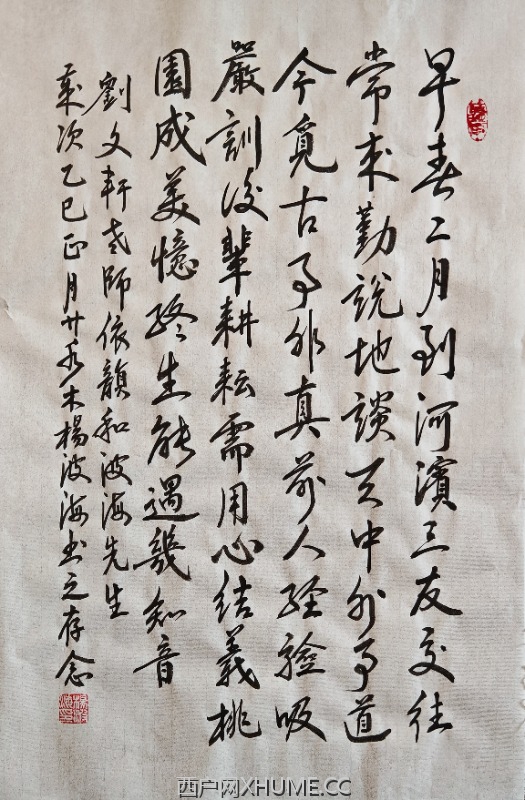 早春二月到河濱三友交往
常来勤說地談天中外事道
今覓古事非真前人经驗吸
嚴訓後輩耕耘需用心結義桃
園成美憶終生能遇幾知音
劉文軒老師依韻和波海先生
歲次乙巳正月廿木楊波海书之存念
西户网XHUME.CC